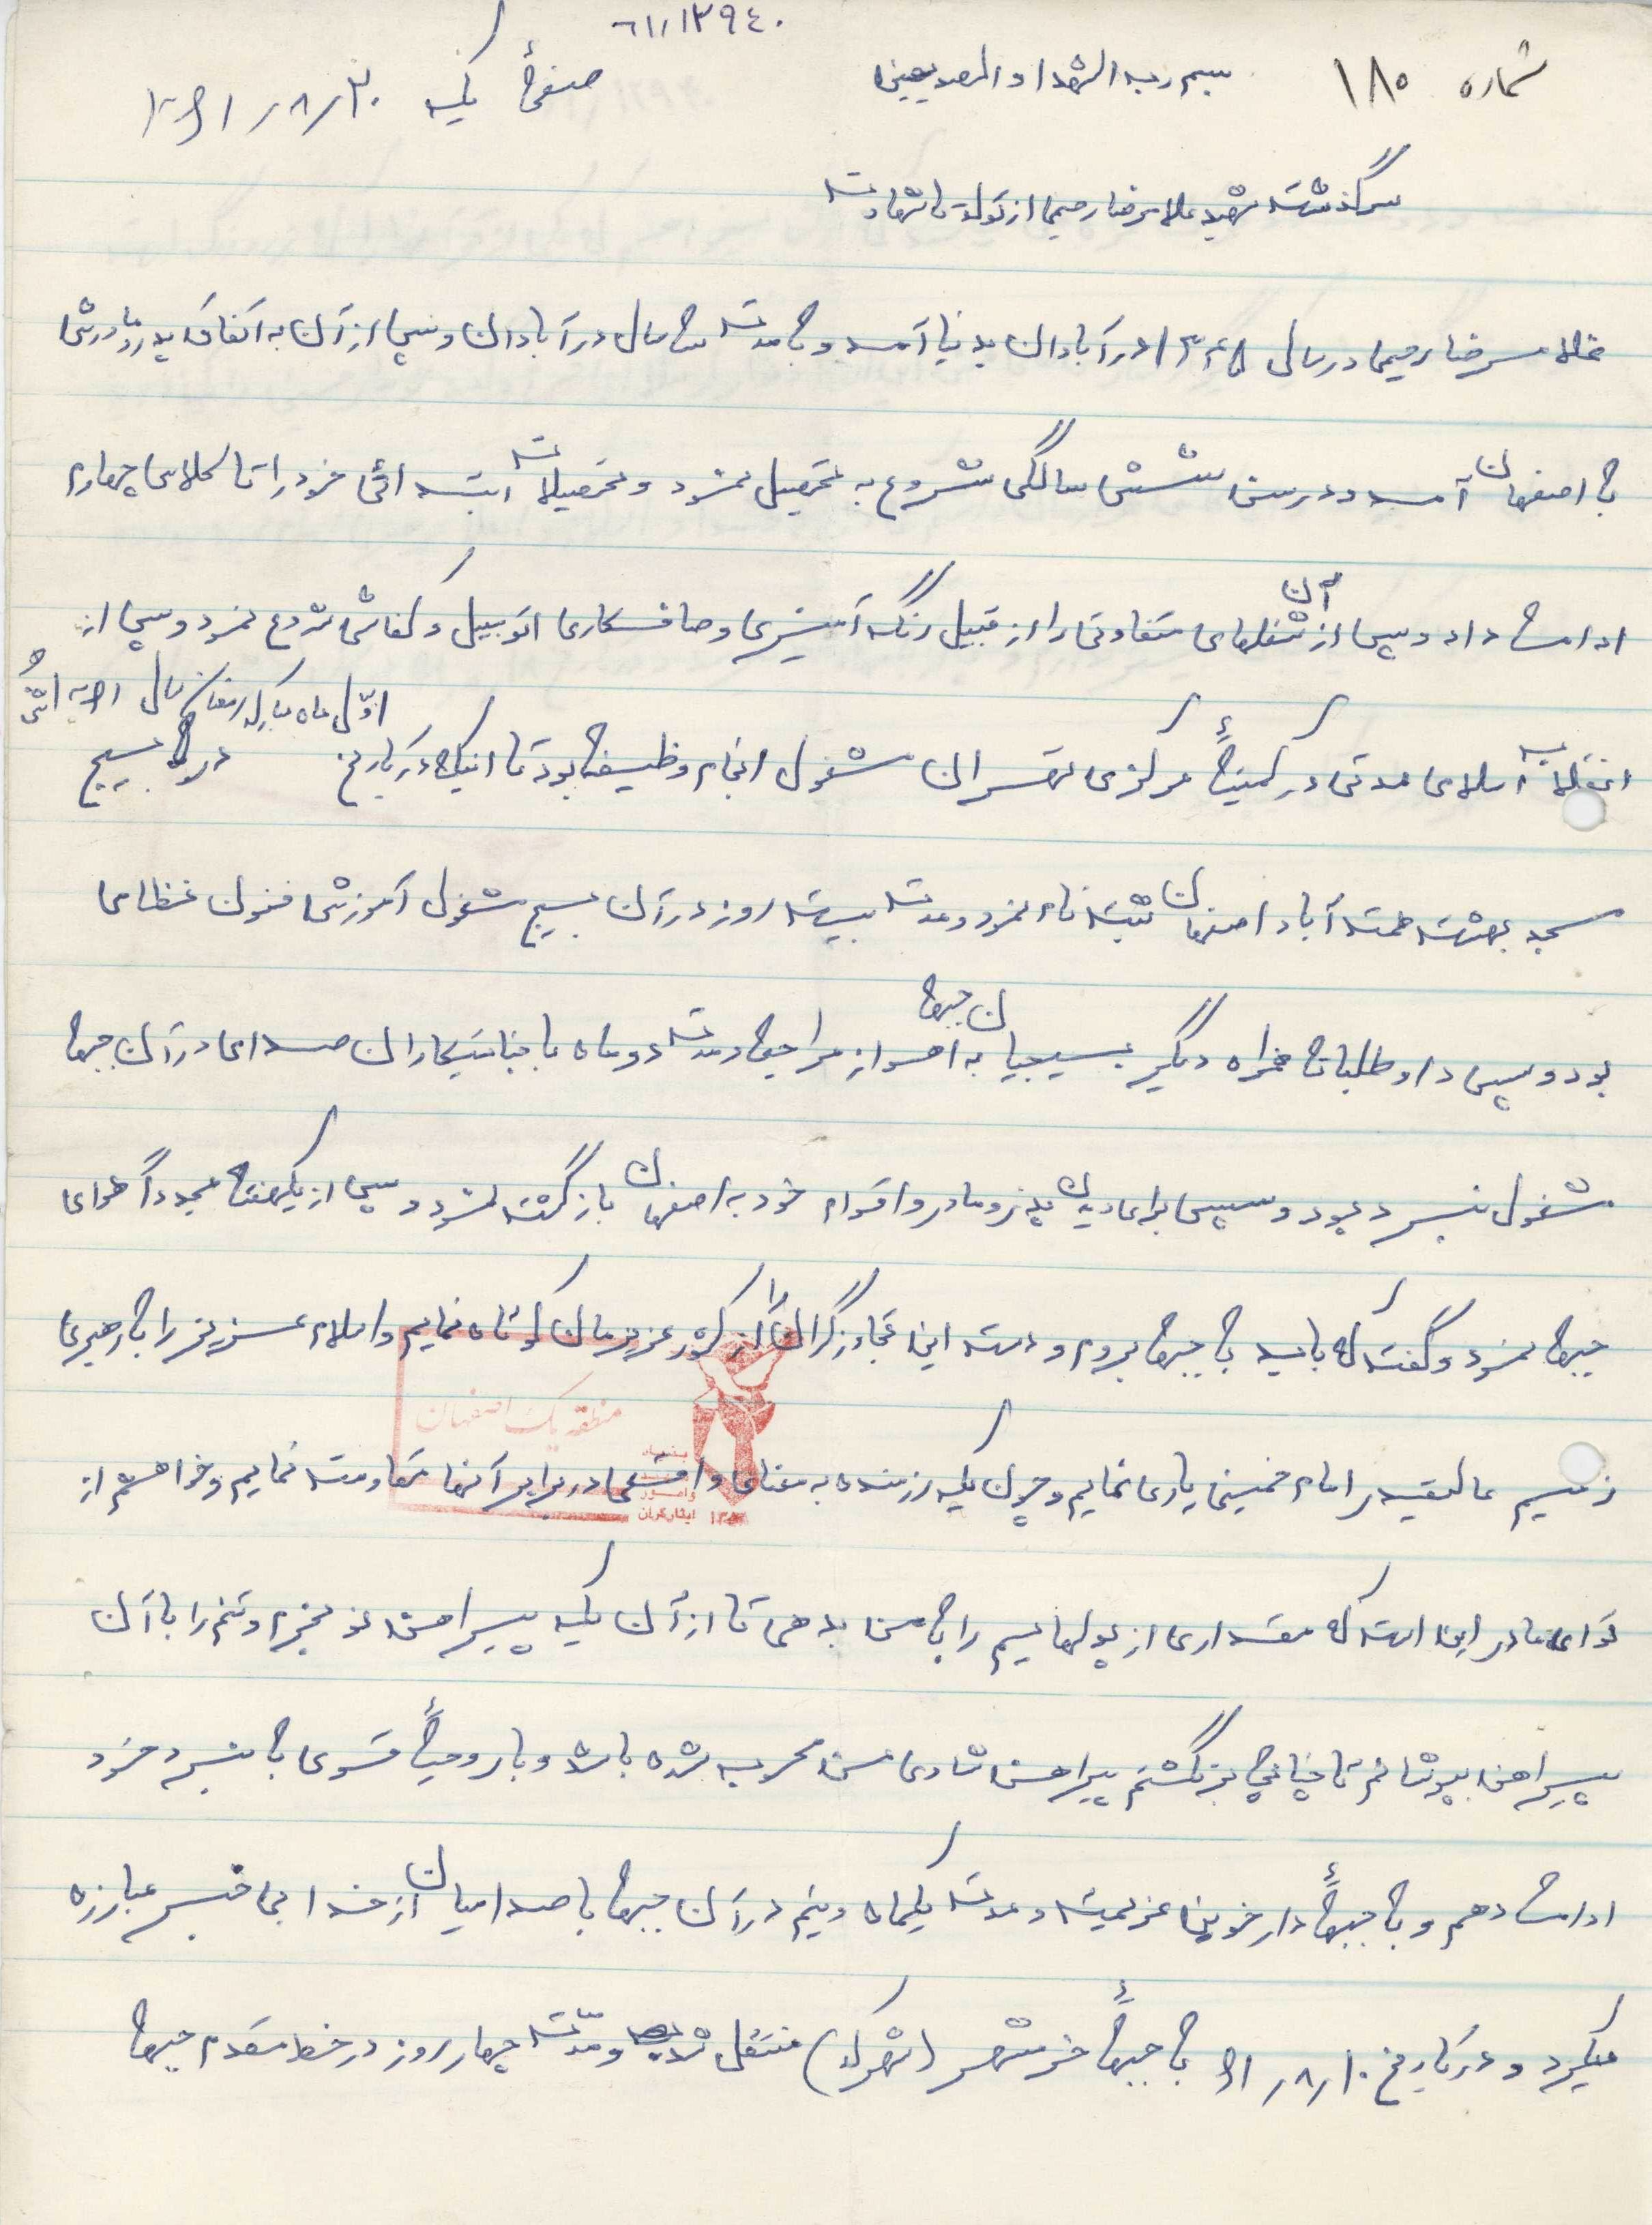 ۶۱/۱۳۹۴۰
شماره ۱۸۰
بسم رب الشهدا و الصدیقین
صفحهٔ یک ۱۳۶۱/۸/۳۰
سرگذشت شهید غلامرضا رحیمی از تولد تا شهادت
غلامرضا رحیمی در سال ۱۳۴۵ در آبادان بدنیا آمد و به مدت سه سال در آبادان و سپس از آن به اتفاق پدر و مادرش
به اصفهان آمد و در سن شش سالگی شروع به تحصیل نمود و تحصیلات ابتدائی خود را تا کلاس چهارم
ادامه داد و پس از آن شغلهای متفاوتی را از قبیل رنگ آمیزی و صافکاری اتوبیل و کفاشی شروع نمود و پس از
انقلاب اسلامی مدتی در کمیتهٔ مرکزی تهران مشغول انجام وظیفه بود تا اینکه در تاریخ اوّل ماه مبارک رمضان سال در بسیج
مسجد بهشت همت آباد اصفهان ثبت نام نمود و مدت بیست روز در آن بسیج مشغول آموزش فنون نظامی
بود و سپس داوطلبانه همراه دیگر بسیجیان به جبهه اهواز مراجعه و مدت دو ماه با جنایتکاران صدامی در آن جبهه
مشغول نبرد بود و سپس برای دیدن پدر و مادر و اقوام خود به اصفهان بازگشت نمود و پس از یکهفته مجدداً هوای
جبهه نمود و گفت که باید به جبهه بروم و دست این تجاوزگران را از کشور عزیزمان کوتاه نمایم و اسلام عزیز را به رهبری
زعیم عالیقدر امام خمینی یاری نمایم و چون یک رزمنده به معنای واقعی در برابر آنها مقاومت نمایم و خواهشم از
تو ای مادر این است که مقداری از پولهایم را به من بدهی تا از آن یک پیراهن نو بخرم و تنم را با آن
پیراهن بپوشانم تا چنانچه برگشتم پیراهن شادی من محسوب شده باشد و با روحیهٔ قوی به نبرد خود
ادامه دهم و به جبههٔ دارخوین عزیمت و مدت یکماه و نیم در آن جبهه با صدامیان از خدا بی خبر مبارزه
میکرد و در تاریخ ۶۱/۸/۱۰ به جبههٔ خرمشهر (شهرک) منتقل شد و مدّت چهار روز در خط مقدم جبهه
منطقه یک اصفهان
بنیاد
و امور
ایثارگران